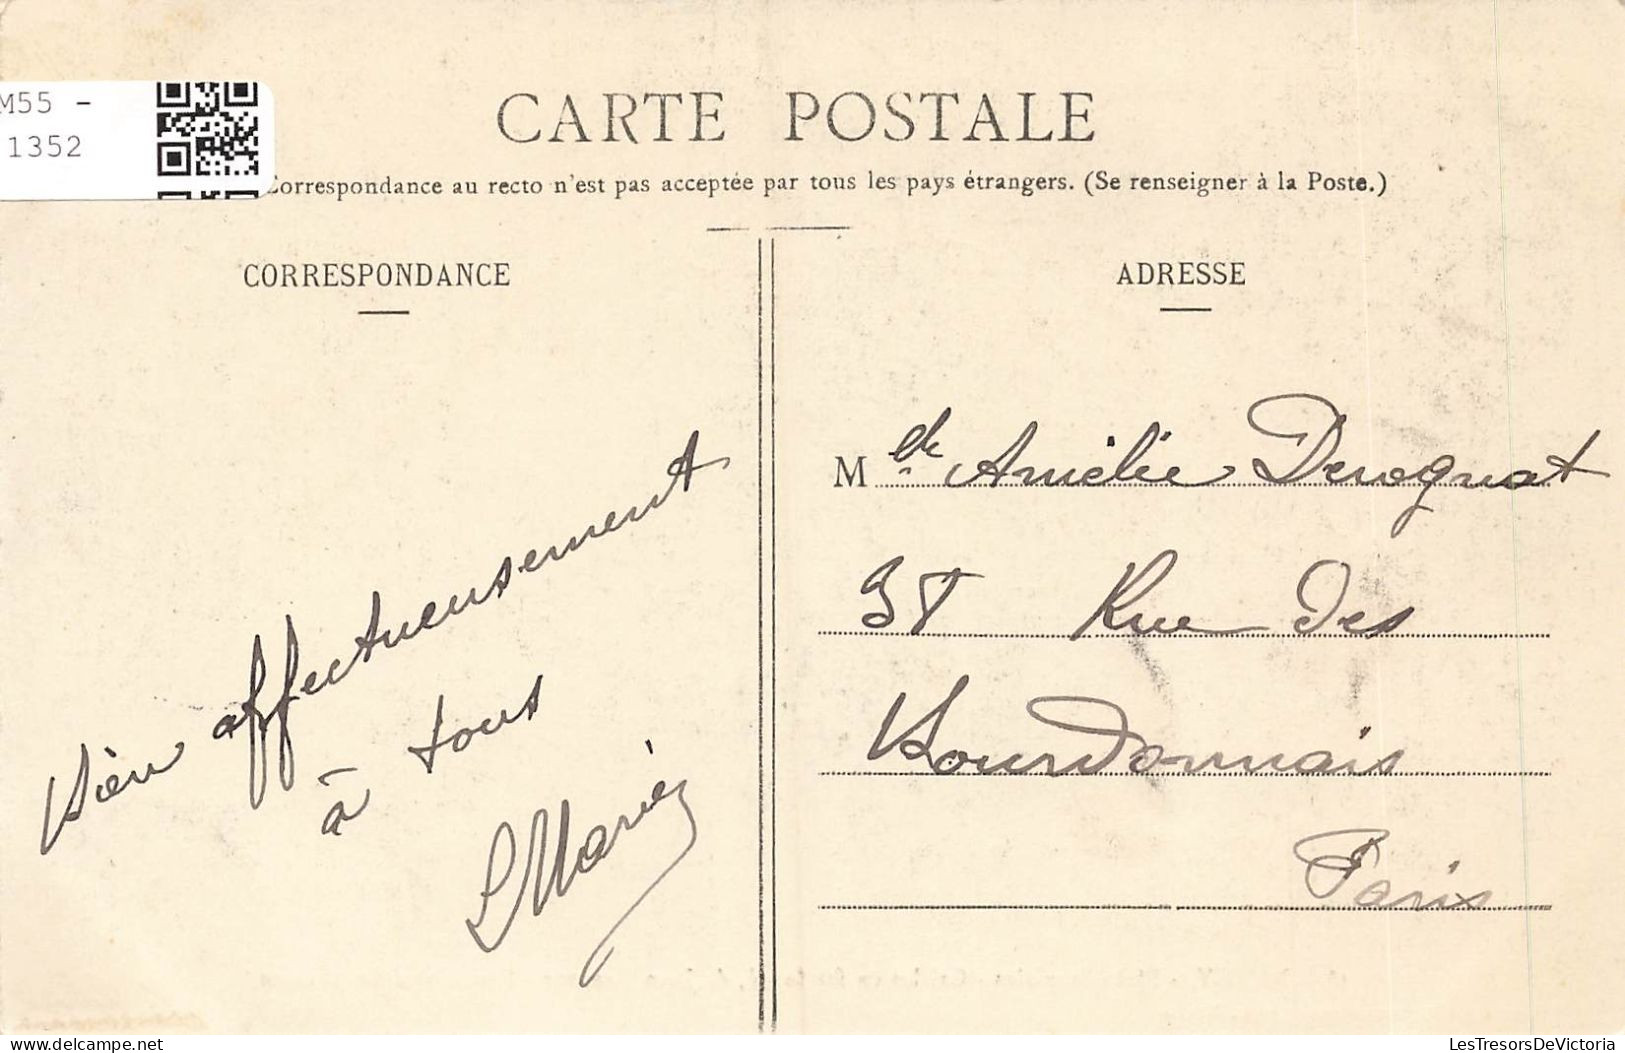 M55 -
1352
CARTE POSTALE
Correspondance au recto n'est pas acceptée par tous les pays étrangers. (Se renseigner à la Poste.)
CORRESPONDANCE
Bien affectueusement
à tous
ADRESSE
Mlle Amélie Derognat
Rue des
Bourdonnais
Paris
LesTresorsDeVictoria.com
LesTresorsDeVictoria